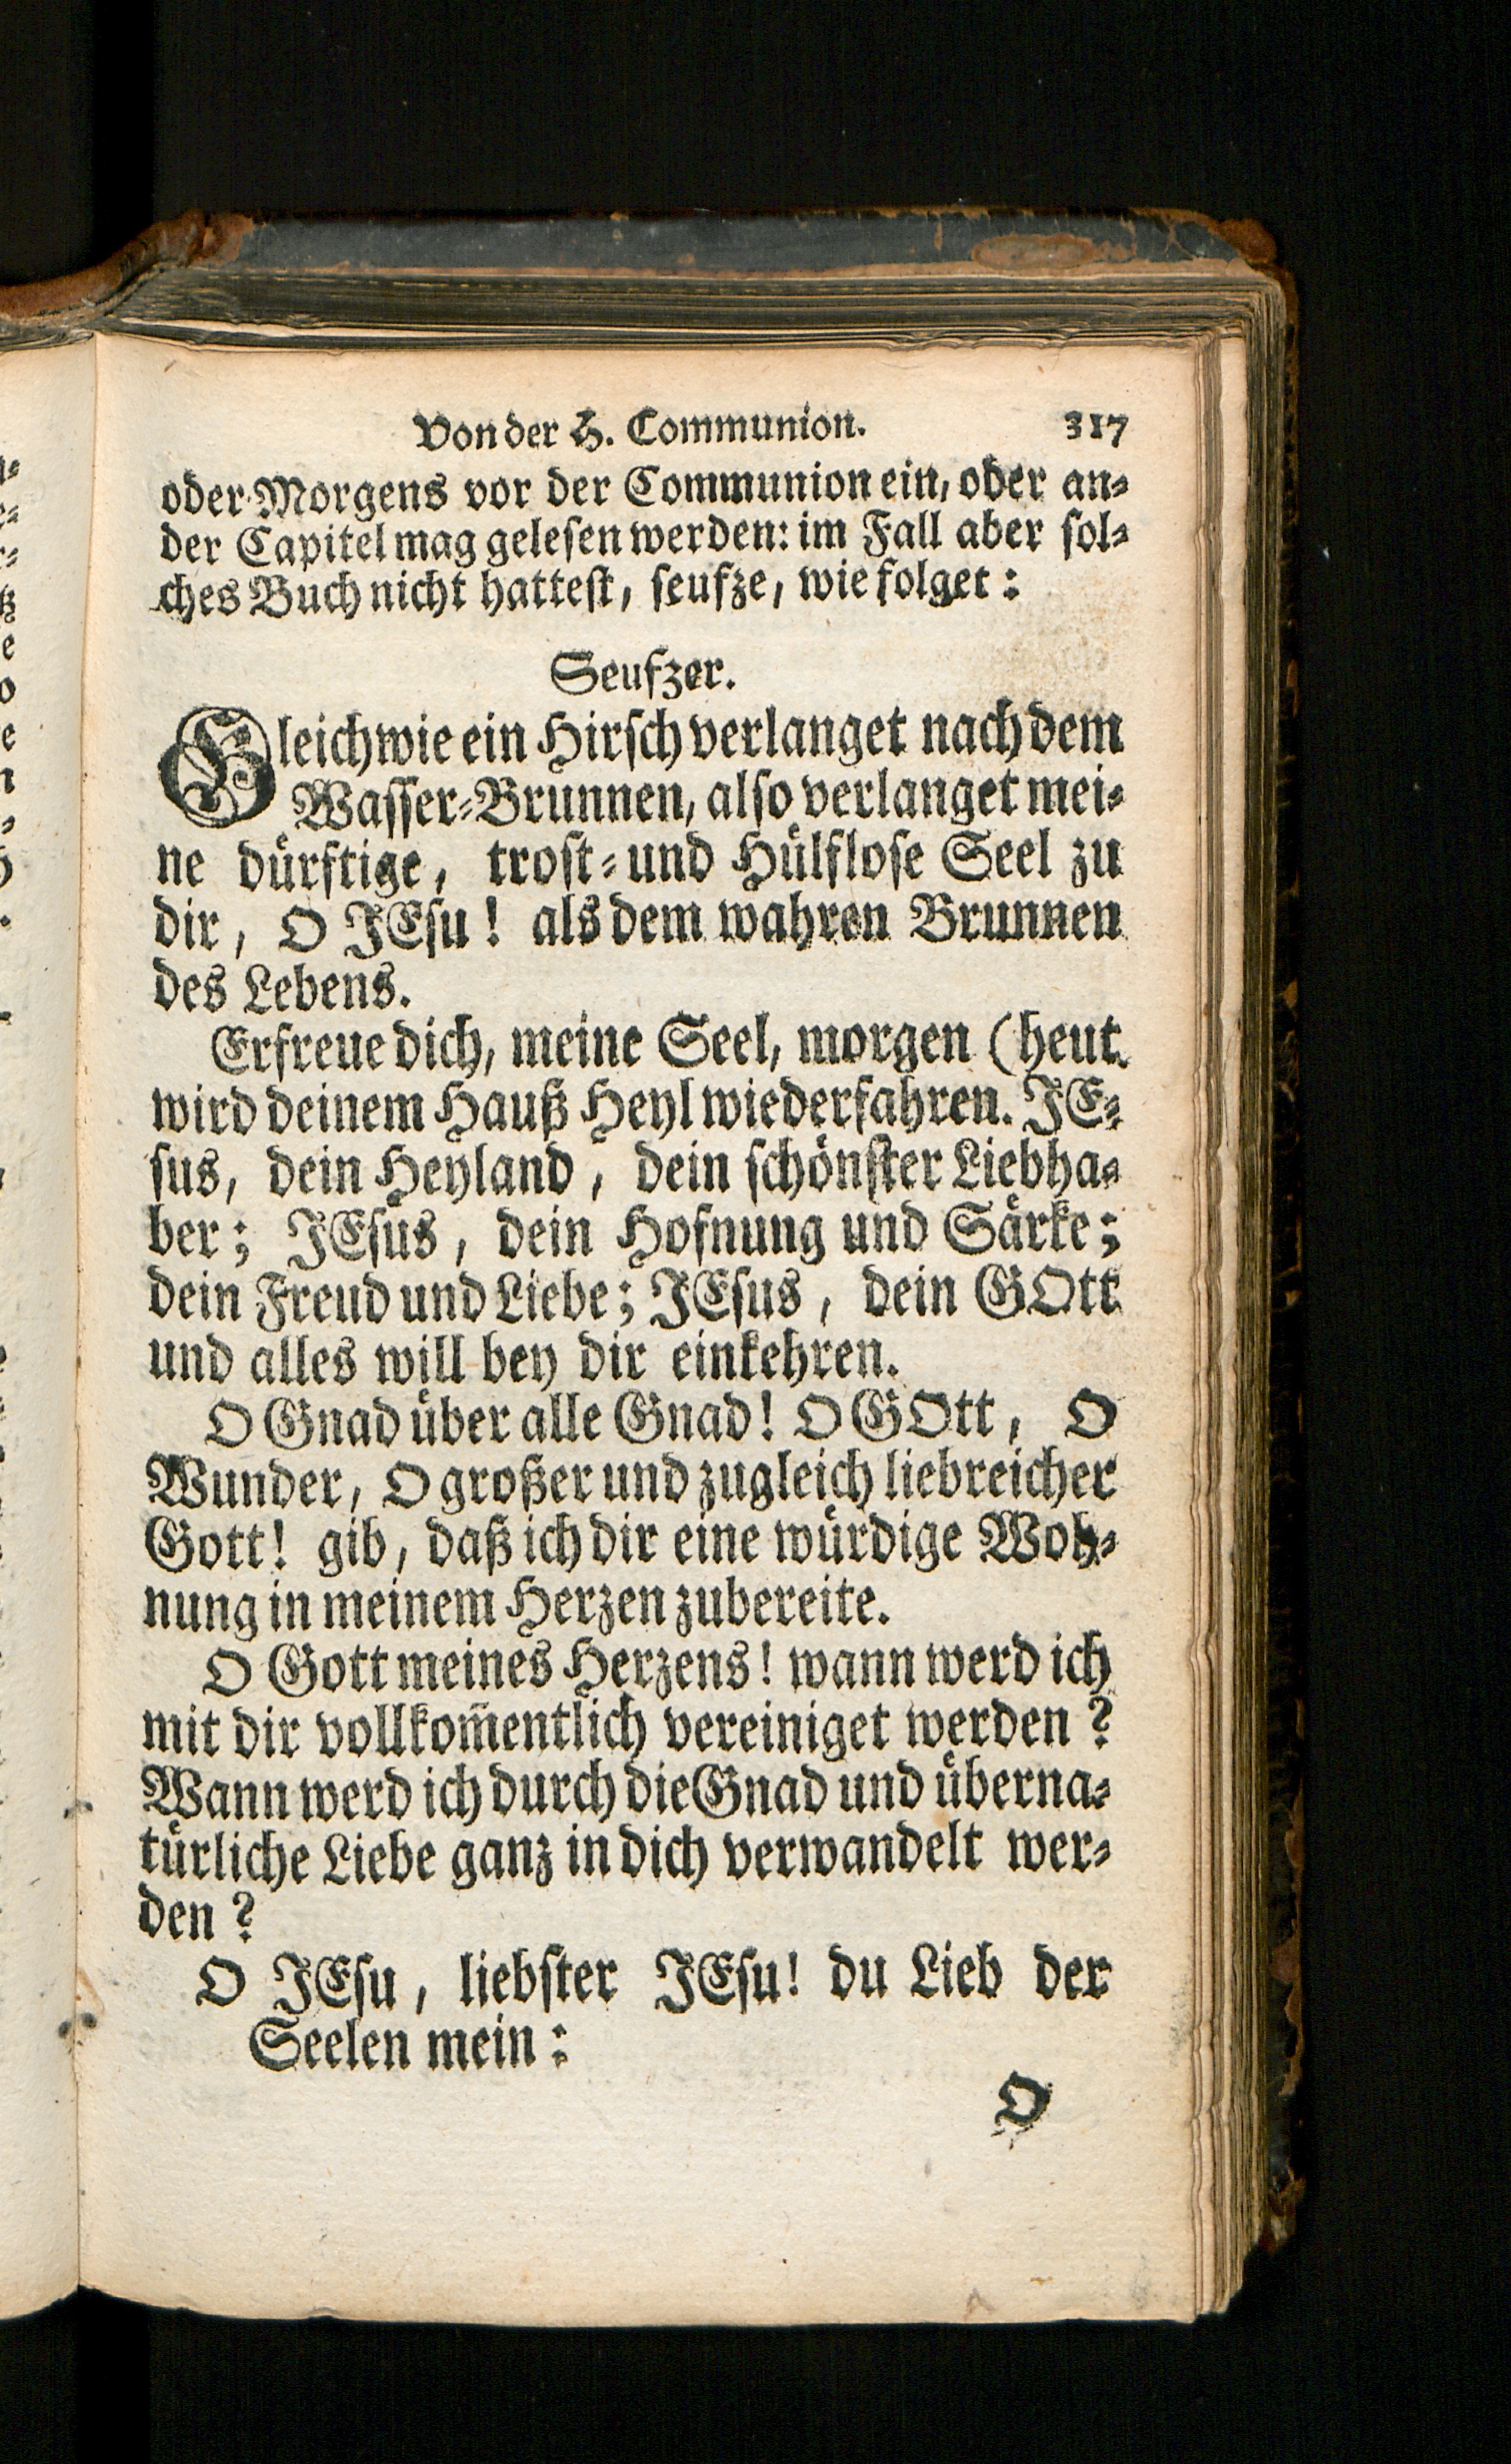 Von der H. Communion. 317
oder Morgens vor der Communion ein, oder an-
der Capitel mag gelesen werden: im Fall aber sol-
ches Buch nicht hattest, seufze, wie folget:
Seufzer.
Gleichwie ein Hirsch verlanget nach dem
Wasser-Brunnen, also verlanget mei-
ne dürftige, trost- und Hülflose Seel zu
dir, O JEsu! als dem wahren Brunnen
des Lebens.
Erfreue dich, meine Seel, morgen (heut
wird deinem Hauß Heyl wiederfahren. JE-
sus, dein Heyland, dein schönster Liebha-
ber; JEsus, dein Hofnung und Särke;
dein Freud und Liebe; JEsus, dein GOtt
und alles will bey dir einkehren.
O Gnad über alle Gnad! O GOtt, O
Wunder, O großer und zugleich liebreicher
Gott! gib, daß ich dir eine würdige Woh-
nung in meinem Herzen zubereite.
O Gott meines Herzens! wann werd ich
mit dir vollkom̅entlich vereiniget werden?
Wann werd ich durch die Gnad und überna-
türliche Liebe ganz in dich verwandelt wer-
den?
O JEsu, liebster JEsu! du Lieb der
Seelen mein:
O